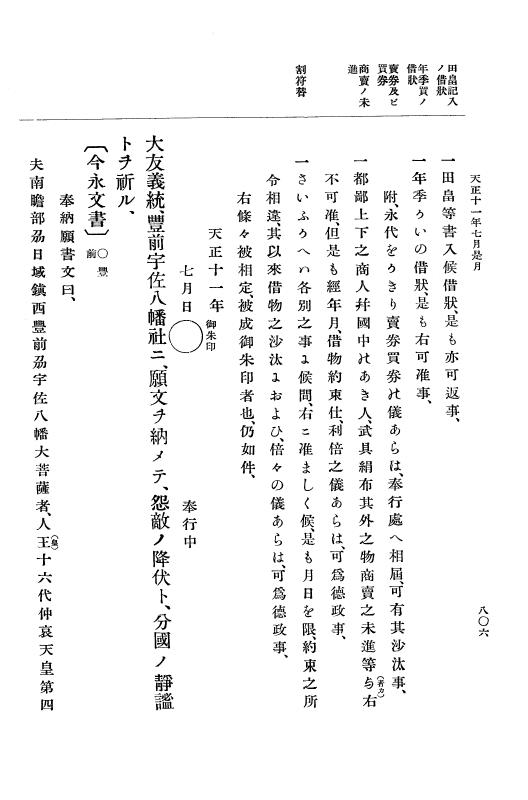 天正十一年七月是月
八〇六
田畠記入
ノ借狀
年季買ノ
借狀
賣劵及ビ
買劵
商賣ノ未
進
割符替
一田畠等書入候借狀、是も亦可返事、
一年季ういの借狀、是も右可准事、
附、永代をうきり賣劵買劵の儀あらは、奉行處へ相屆、可有其沙汰事、
一都鄙上下之商人幷國中のあき人、武具絹布其外之物商賣之未進等与(者カ)右
不可准、但是も經年月、借物約束仕、利倍之儀あらは、可爲德政事、
一さいふうへハ各別之事ニ候間、右ニ准ましく候、是も月日を限、約束之所
令相違、其以來借物之沙汰ニおよひ、倍々の儀あらは、可爲德政事、
右條々被相定、被成御朱印者也、仍如件、
天正十一年 御朱印
七月日〇
奉行中
大友義統、豐前宇佐八幡社ニ、願文ヲ納メテ、怨敵ノ降伏ト、分國ノ靜謐
トヲ祈ル、
〔今永文書〕〇豐前
奉納願書文曰、
夫南瞻部刕日域鎭西豐前刕宇佐八幡大菩薩者、人王(皇)十六代仲哀天皇第四